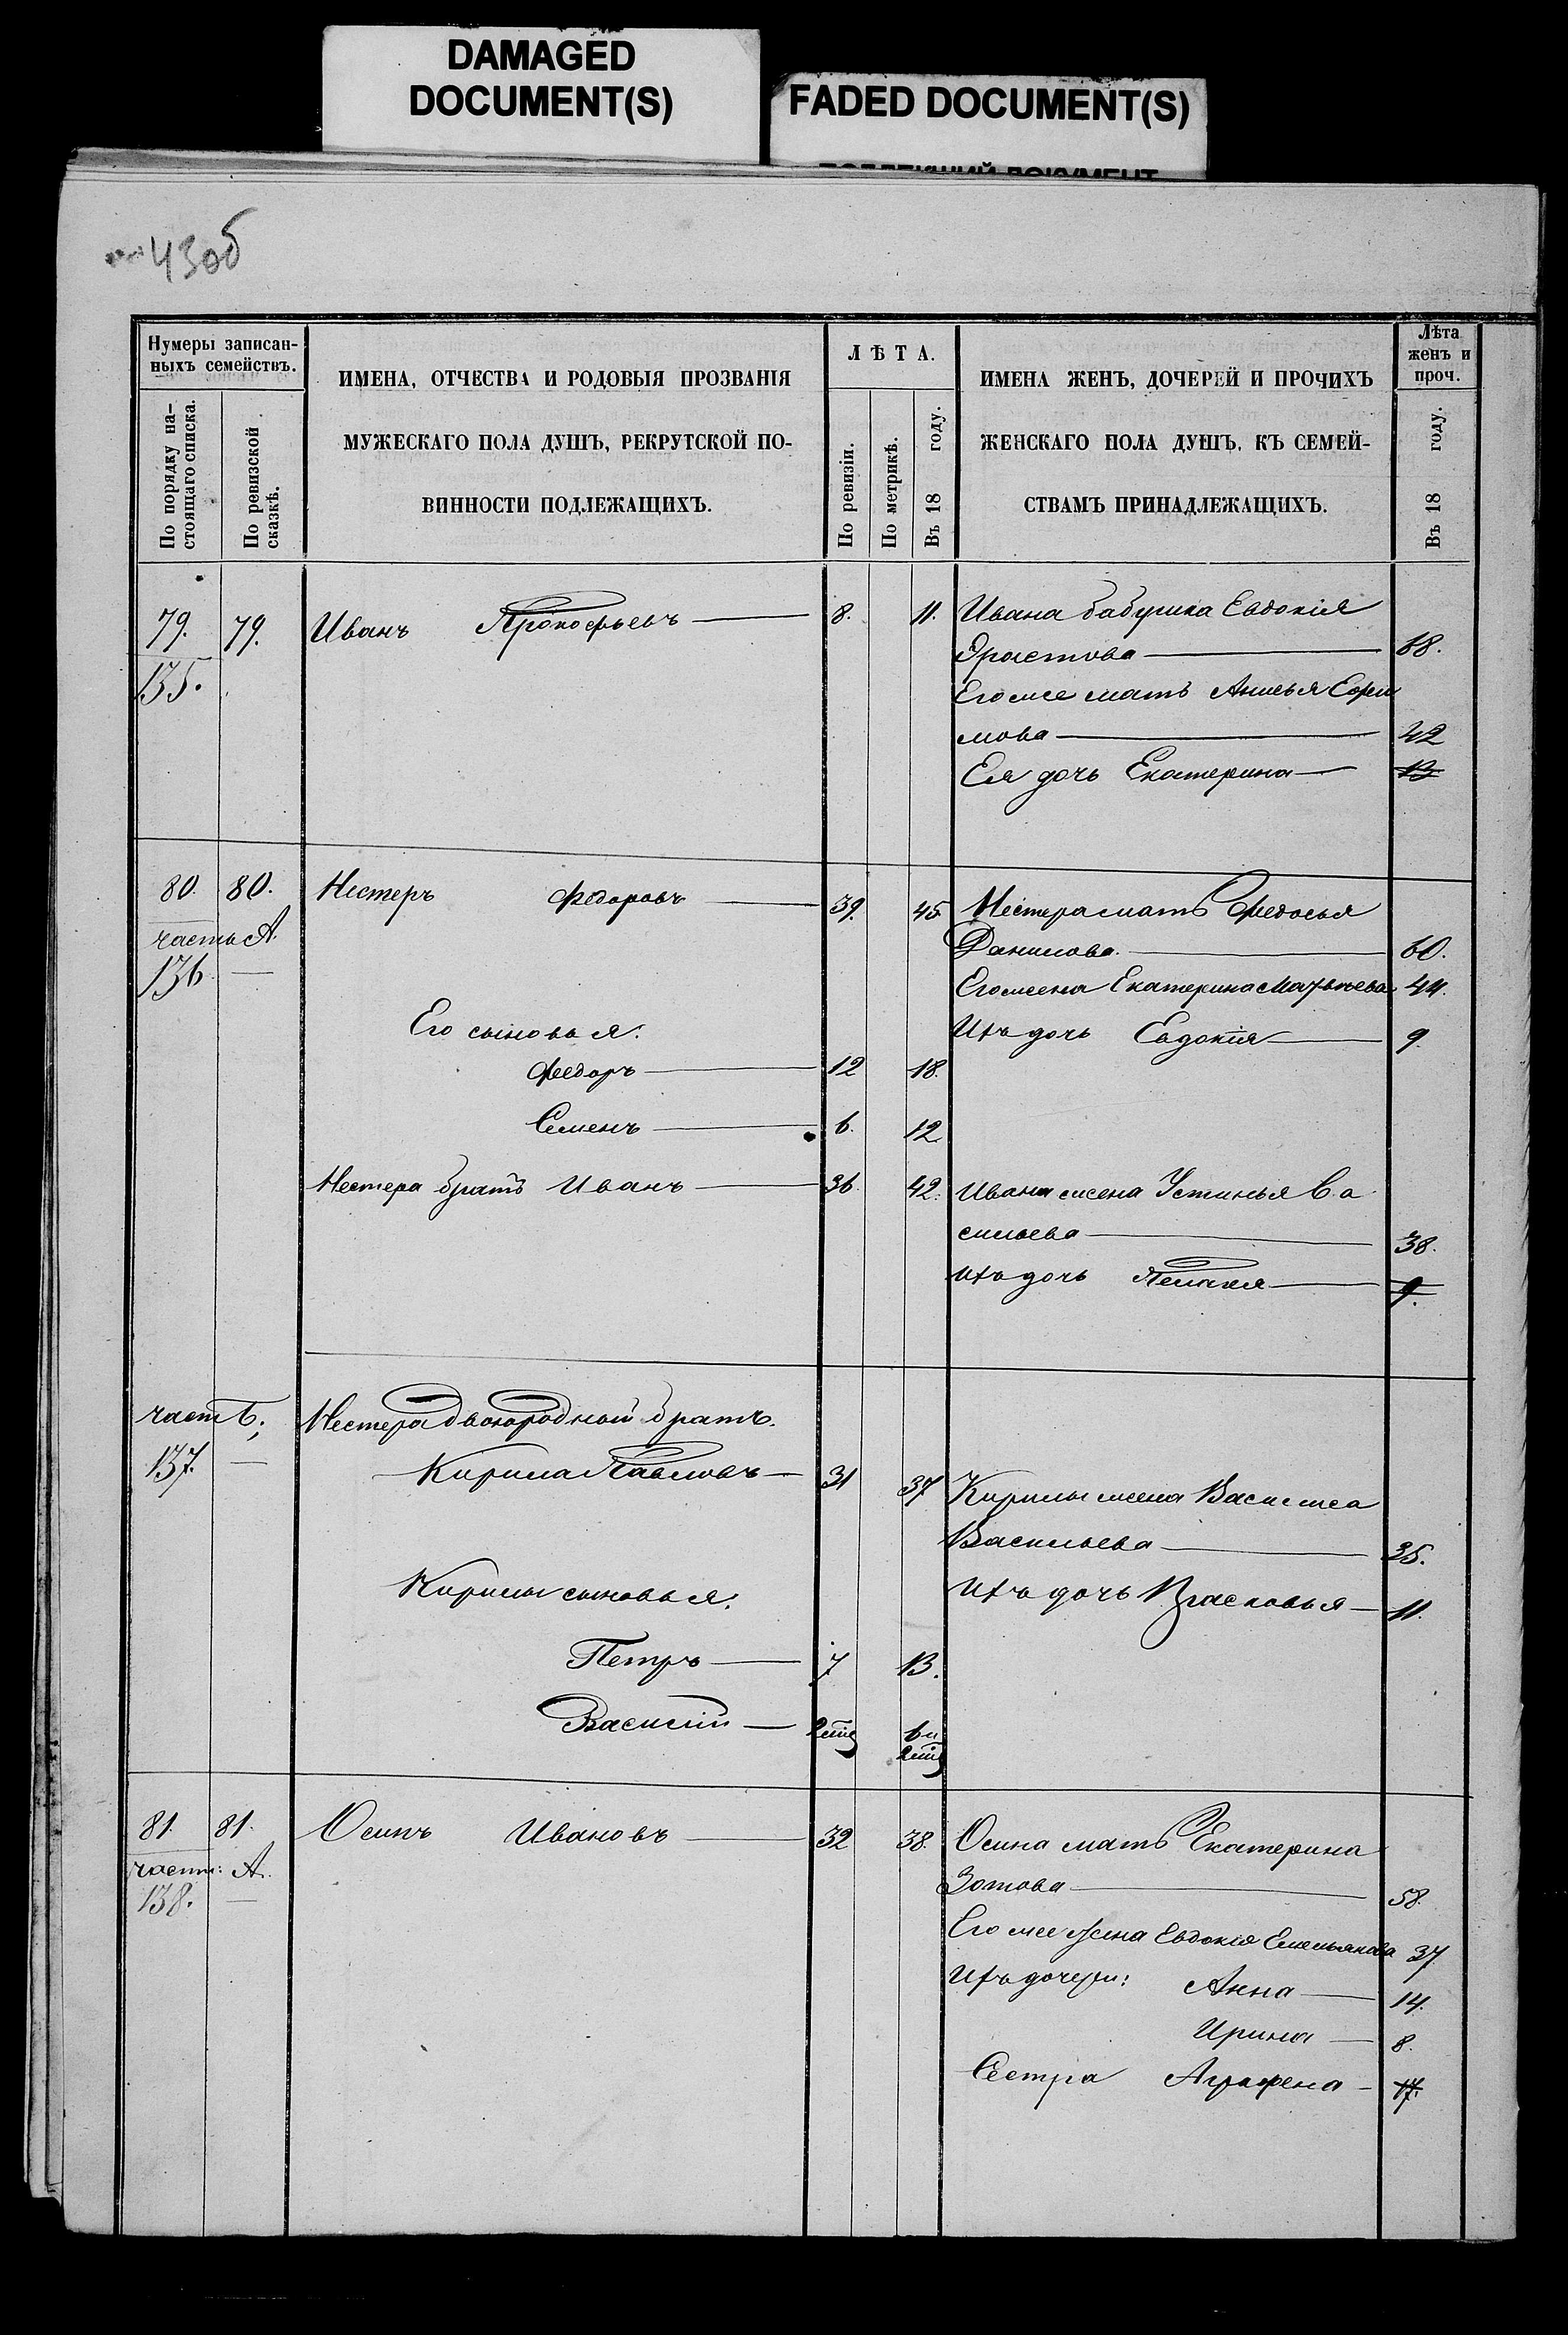 DAMAGED
DOCUMENT(S)
FADED DOCUMENT(S)
43об
Нумеры записан-
ныхъ семействъ.
По порядку на-
стоящаго списка.
По ревизской
сказкѣ.
ИМЕНА, ОТЧЕСТВА И РОДОВЫЯ ПРОЗВАНІЯ
МУЖЕСКАГО ПОЛА ДУШЪ, РЕКРУТСКОЙ ПО-
ВИННОСТИ ПОДЛЕЖАЩИХЪ.
ЛѢТА.
По ревизіи.
По метрикѣ.
Въ 18 году.
ИМЕНА ЖЕНЪ, ДОЧЕРЕЙ И ПРОЧИХЪ
ЖЕНСКАГО ПОЛА ДУШЪ, КЪ СЕМЕЙ-
СТВАМЪ ПРИНАДЛЕЖАЩИХЪ.
Лѣта
женъ и
проч.
Въ 18 году.
79. 79. Иванъ Прокофьевъ 8. 11. Ивана бабушка Евдокія
135. Эрастова 68.
Его же мать Анисья Ефи
мова 42
Ея дочь Екатерина 13
80. 80. Нестеръ Федоровъ 39. 45 Нестера мать Федосья
часть А. Данилова 60.
136 Его жена Екатерина Матвѣева 44.
Его сыновья: Ихъ дочь Евдокія 9.
Федоръ 12 18.
Семенъ 6. 12
Нестера братъ Иванъ 36. 42. Ивана жена Устинья Ва
сильева 38.
Ихъ дочь Пелагея 9.
часть Б; Нестера двоюродной братъ.
137. Кирила Павловъ 31 37 Кирилы жена Василиса
Васильева 35.
Кирилы сыновья: Ихъ дочь Прасковья 11.
Петръ 7 13.
Василій 2 6 и
81. 81. Осипъ Ивановъ 32 38. Осипа мать Екатерина
часть: А. Зотова 58.
138. Его же жена Евдокія Емельянова 37
Ихъ дочери: Анна 14.
Ирина 8.
Сестра Аграфена 17.